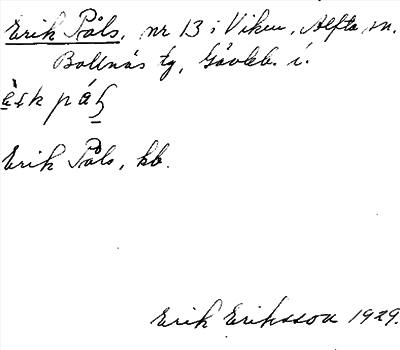 Erik Påls, nr 13 i Viken, Alfta sn.
Bollnäs tg, Gävleb. l.
Erik Påls, kb.
Erik Eriksson 1929.